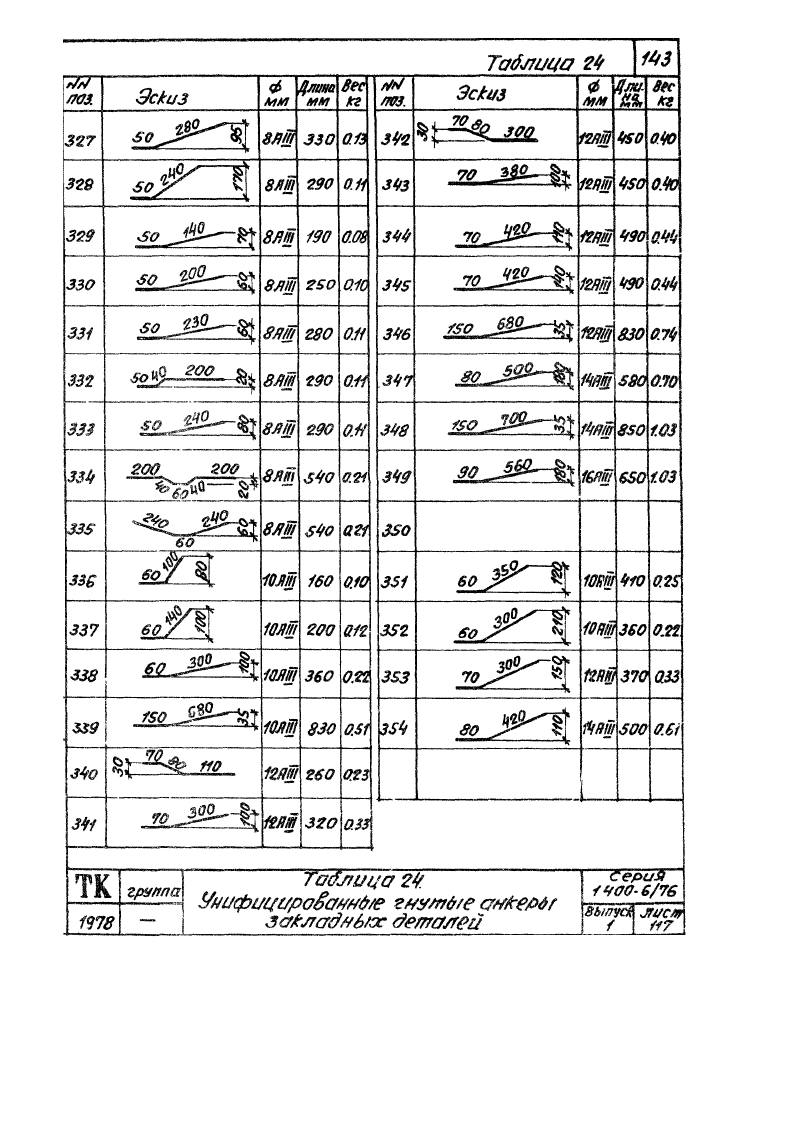 Таблица 24 143
NN поз. Эскиз Ф мм Длина мм Вес кг NN поз. Эскиз Ф мм Длина мм Вес кг
327 50 280 95 8АIII 330 0.13 342 30 70 80 300 12АIII 450 0.40
328 50 240 170 8АIII 290 0.11 343 70 380 100 12АIII 450 0.40
329 50 140 70 8АIII 190 0.08 344 70 420 110 12АIII 490 0.44
330 50 200 60 8АIII 250 0.10 345 70 420 140 12АIII 490 0.44
331 50 230 60 8АIII 280 0.11 346 150 680 35 12АIII 830 0.74
332 50 40 200 20 8АIII 290 0.11 347 80 500 180 14АIII 580 0.70
333 50 240 80 8АIII 290 0.11 348 150 700 35 14АIII 850 1.03
334 200 40 60 40 200 20 8АIII 540 0.21 349 90 560 180 16АIII 650 1.03
335 240 60 240 60 8АIII 540 0.21 350
336 60 100 80 10АIII 160 0.10 351 60 350 120 10АIII 410 0.25
337 60 140 100 10АIII 200 0.12 352 60 300 210 10АIII 360 0.22
338 60 300 100 10АIII 360 0.22 353 70 300 150 12АIII 370 0.33
339 150 680 35 10АIII 830 0.51 354 80 420 110 14АIII 500 0.61
340 30 70 80 110 12АIII 260 0.23
341 70 300 100 12АIII 320 0.33
ТК группа Таблица 24. Серия
1400-6/76
Унифицированные гнутые анкеры
1978 — закладных деталей Выпуск 1 Лист 117